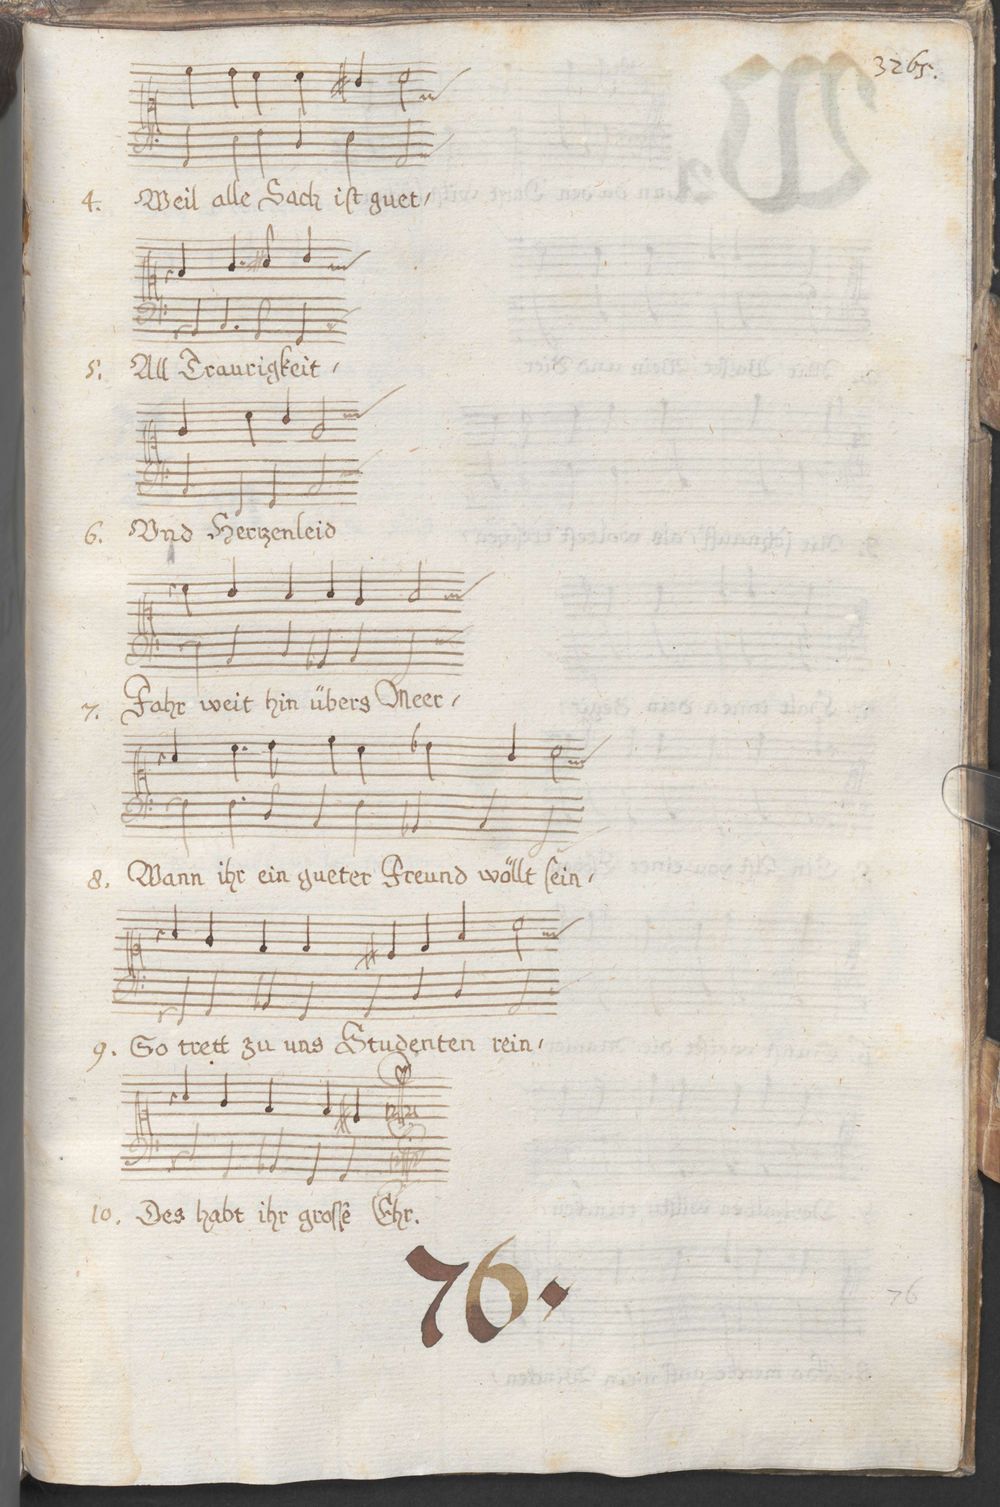 3265.
4. Weil alle Sach ist guet/
5. All Traurigkeit/
6. Vnd Hertzenleid
7. Fahr weit hin übers Meer/
8. Wann ihr ein gueter Freund wöllt sein/
9. So trett zu uns Studenten rein/
10. Des habt ihr grosse Ehr.
76.
76